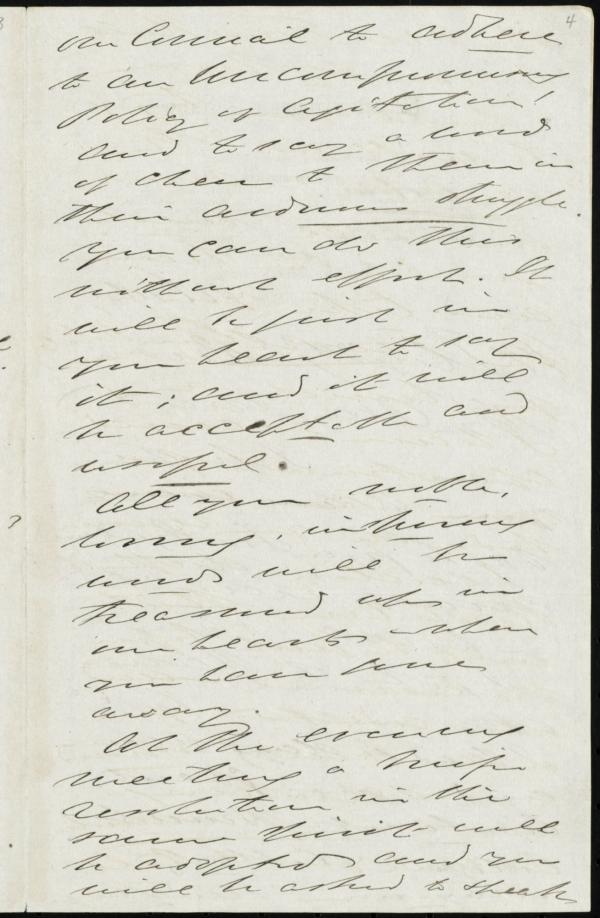 4
our Council to adhere
to an uncompromising
Policy of agitation!
and to say a word
of cheer to them in
their arduous struggle.
you can do this
without effort. It
will be just in
your heart to say
it; and it will
be acceptable and
useful.
All your noble,
loving,
words will be
treasured up in
our hearts when
you have gone
away.
At the evening
meeting a
resolution in the
same spirit will
be adopted and you
will be asked to speak